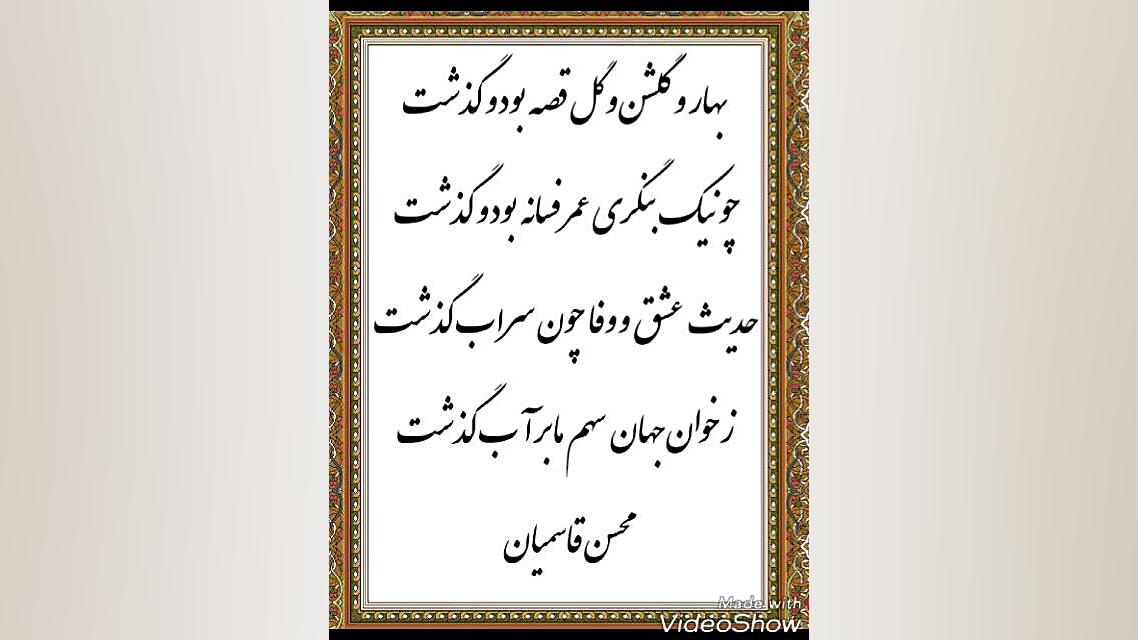 بهار و گلشن و گل قصه بود و گذشت
چو نیک بنگری عمر فسانه بود و گذشت
حدیث عشق و وفا چون سراب گذشت
ز خوان جهان سهم ما بر آب گذشت
محسن قاسمیان
Made with
VideoShow